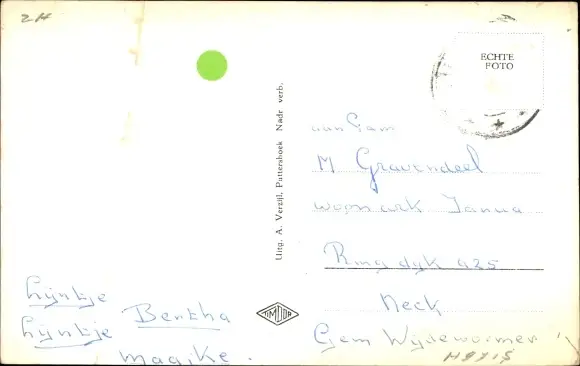 2H
ECHTE
FOTO
Uitg. A. Verzijl, Puttershoek Nadr verb.
aan Fam
M Gravendeel
woonark Janua
Ringdyk 925
Neck
Gem Wydewormer
Lijntje
Lijntje Bertha
Magike.
TIMDOR
H9715